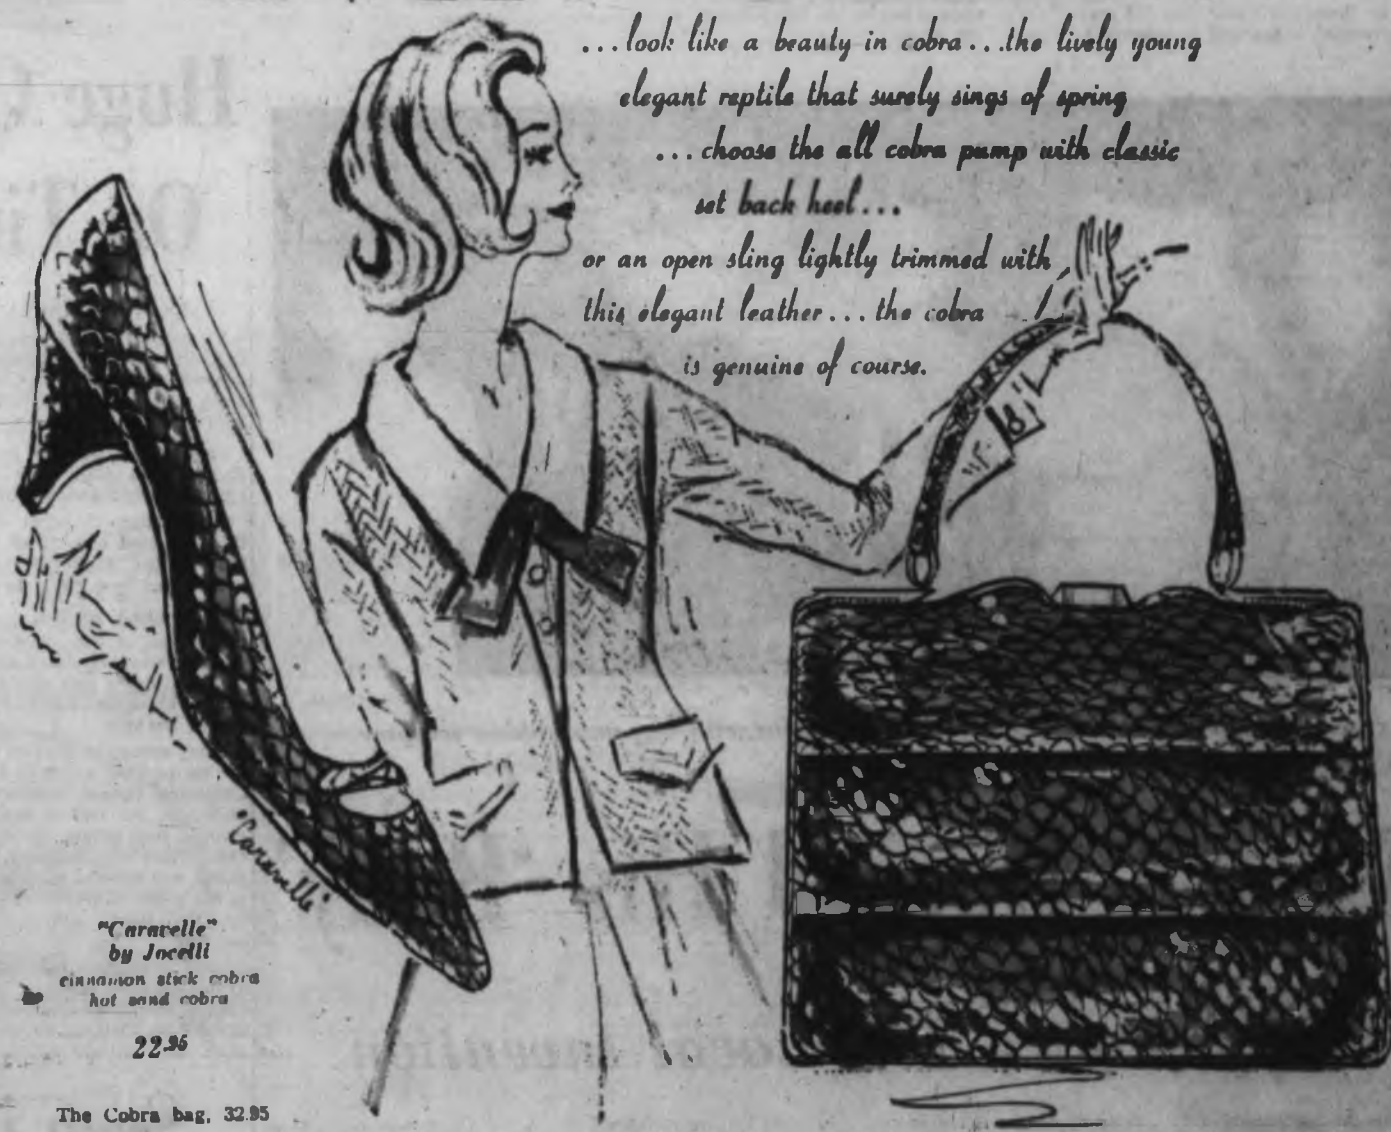 ...look like a beauty in cobra...the lively young
elegant reptile that surely sings of spring
...choose the all cobra pump with classic
set back heel...
or an open sling lightly trimmed with
this elegant leather...the cobra
is genuine of course.
"Caravelle"
"Caravelle"
by Jocelli
cinnamon stick cobra
hot sand cobra
22.95
The Cobra bag, 32.95